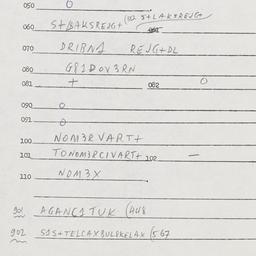 050 0
060 S+BAKSREJG+ (102 S+LAK+REJG+
070 DRIRN1 REJG+DL
080 G81DOV3RN
081 + 082 0
090 0
091 0
100 NOM3RVART+
101 TONOM3RCIVART+ 102 —
110 NOM3X
901 AGANC1TUK (448
902 S1S+TELCAX3ULPKELAX (567